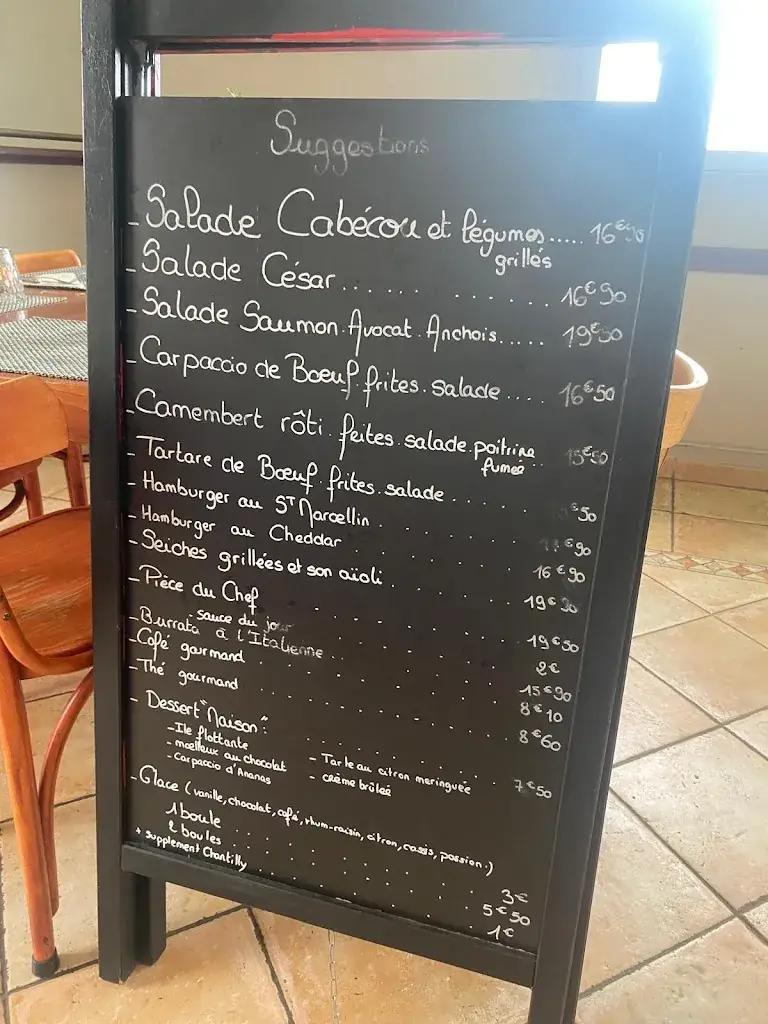 Suggestions
- Salade Cabécou et légumes ..... 16€90
grillés
- Salade César ...... ...... 16€90
- Salade Saumon. Avocat. Anchois..... 19€50
- Carpaccio de Boeuf. frites. salade .... 16€50
- Camembert rôti. frites. salade. poitrine 15€50
fumée ..
- Tartare de Boeuf. frites. salade ....... €50
- Hamburger au St Marcellin €90
- Hamburger au Cheddar 16€90
- Seiches grillées et son aïoli ....... 19€
- Pièce du Chef ....... 19€50
sauce du jour ....... 2€
- Burrata à l'Italienne ....... 15€90
- Café gourmand ....... 8€10
- Thé gourmand ....... 8€60
- Dessert "Maison": ....... 7€50
- Ile flottante - Tarte au citron meringuée
- moelleux au chocolat - crème brûlée
- Carpaccio d'Ananas
- Glace (vanille, chocolat, café, rhum-raisin, citron, cassis, passion.)
1 boule ....... 3€
2 boules ....... 5€50
+ supplement Chantilly ....... 1€